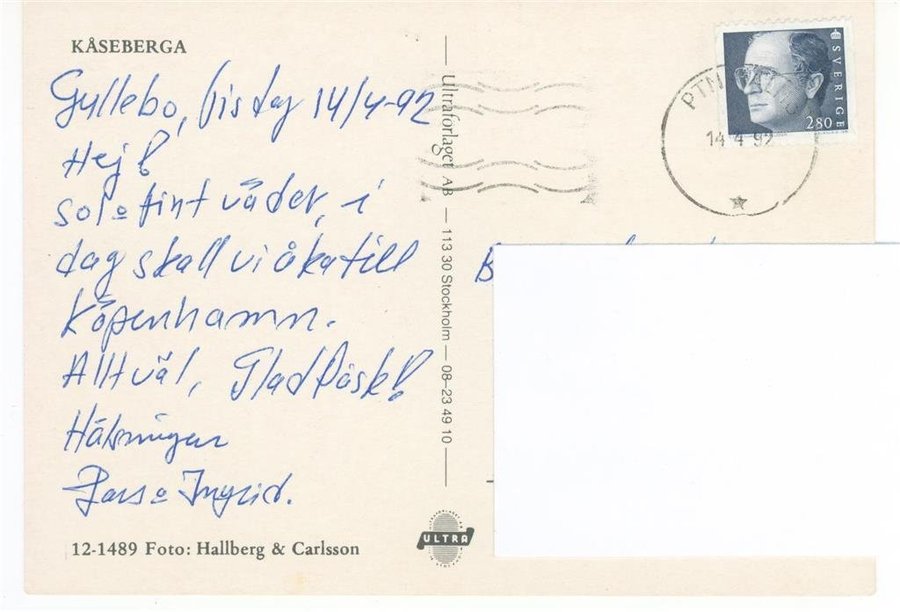 KÅSEBERGA
Gyllebo, tisdag 14/4-92
Hej!
sol o fint väder, i
dag skall vi åka till
Köpenhamn.
Allt väl, Glad Påsk!
Hälsningar
Lars o Ingrid.
12-1489 Foto: Hallberg & Carlsson
Ultraförlaget AB — 113 30 Stockholm — 08-23 49 10
ULTRA
SVERIGE
280
PTN
14 4 92
B